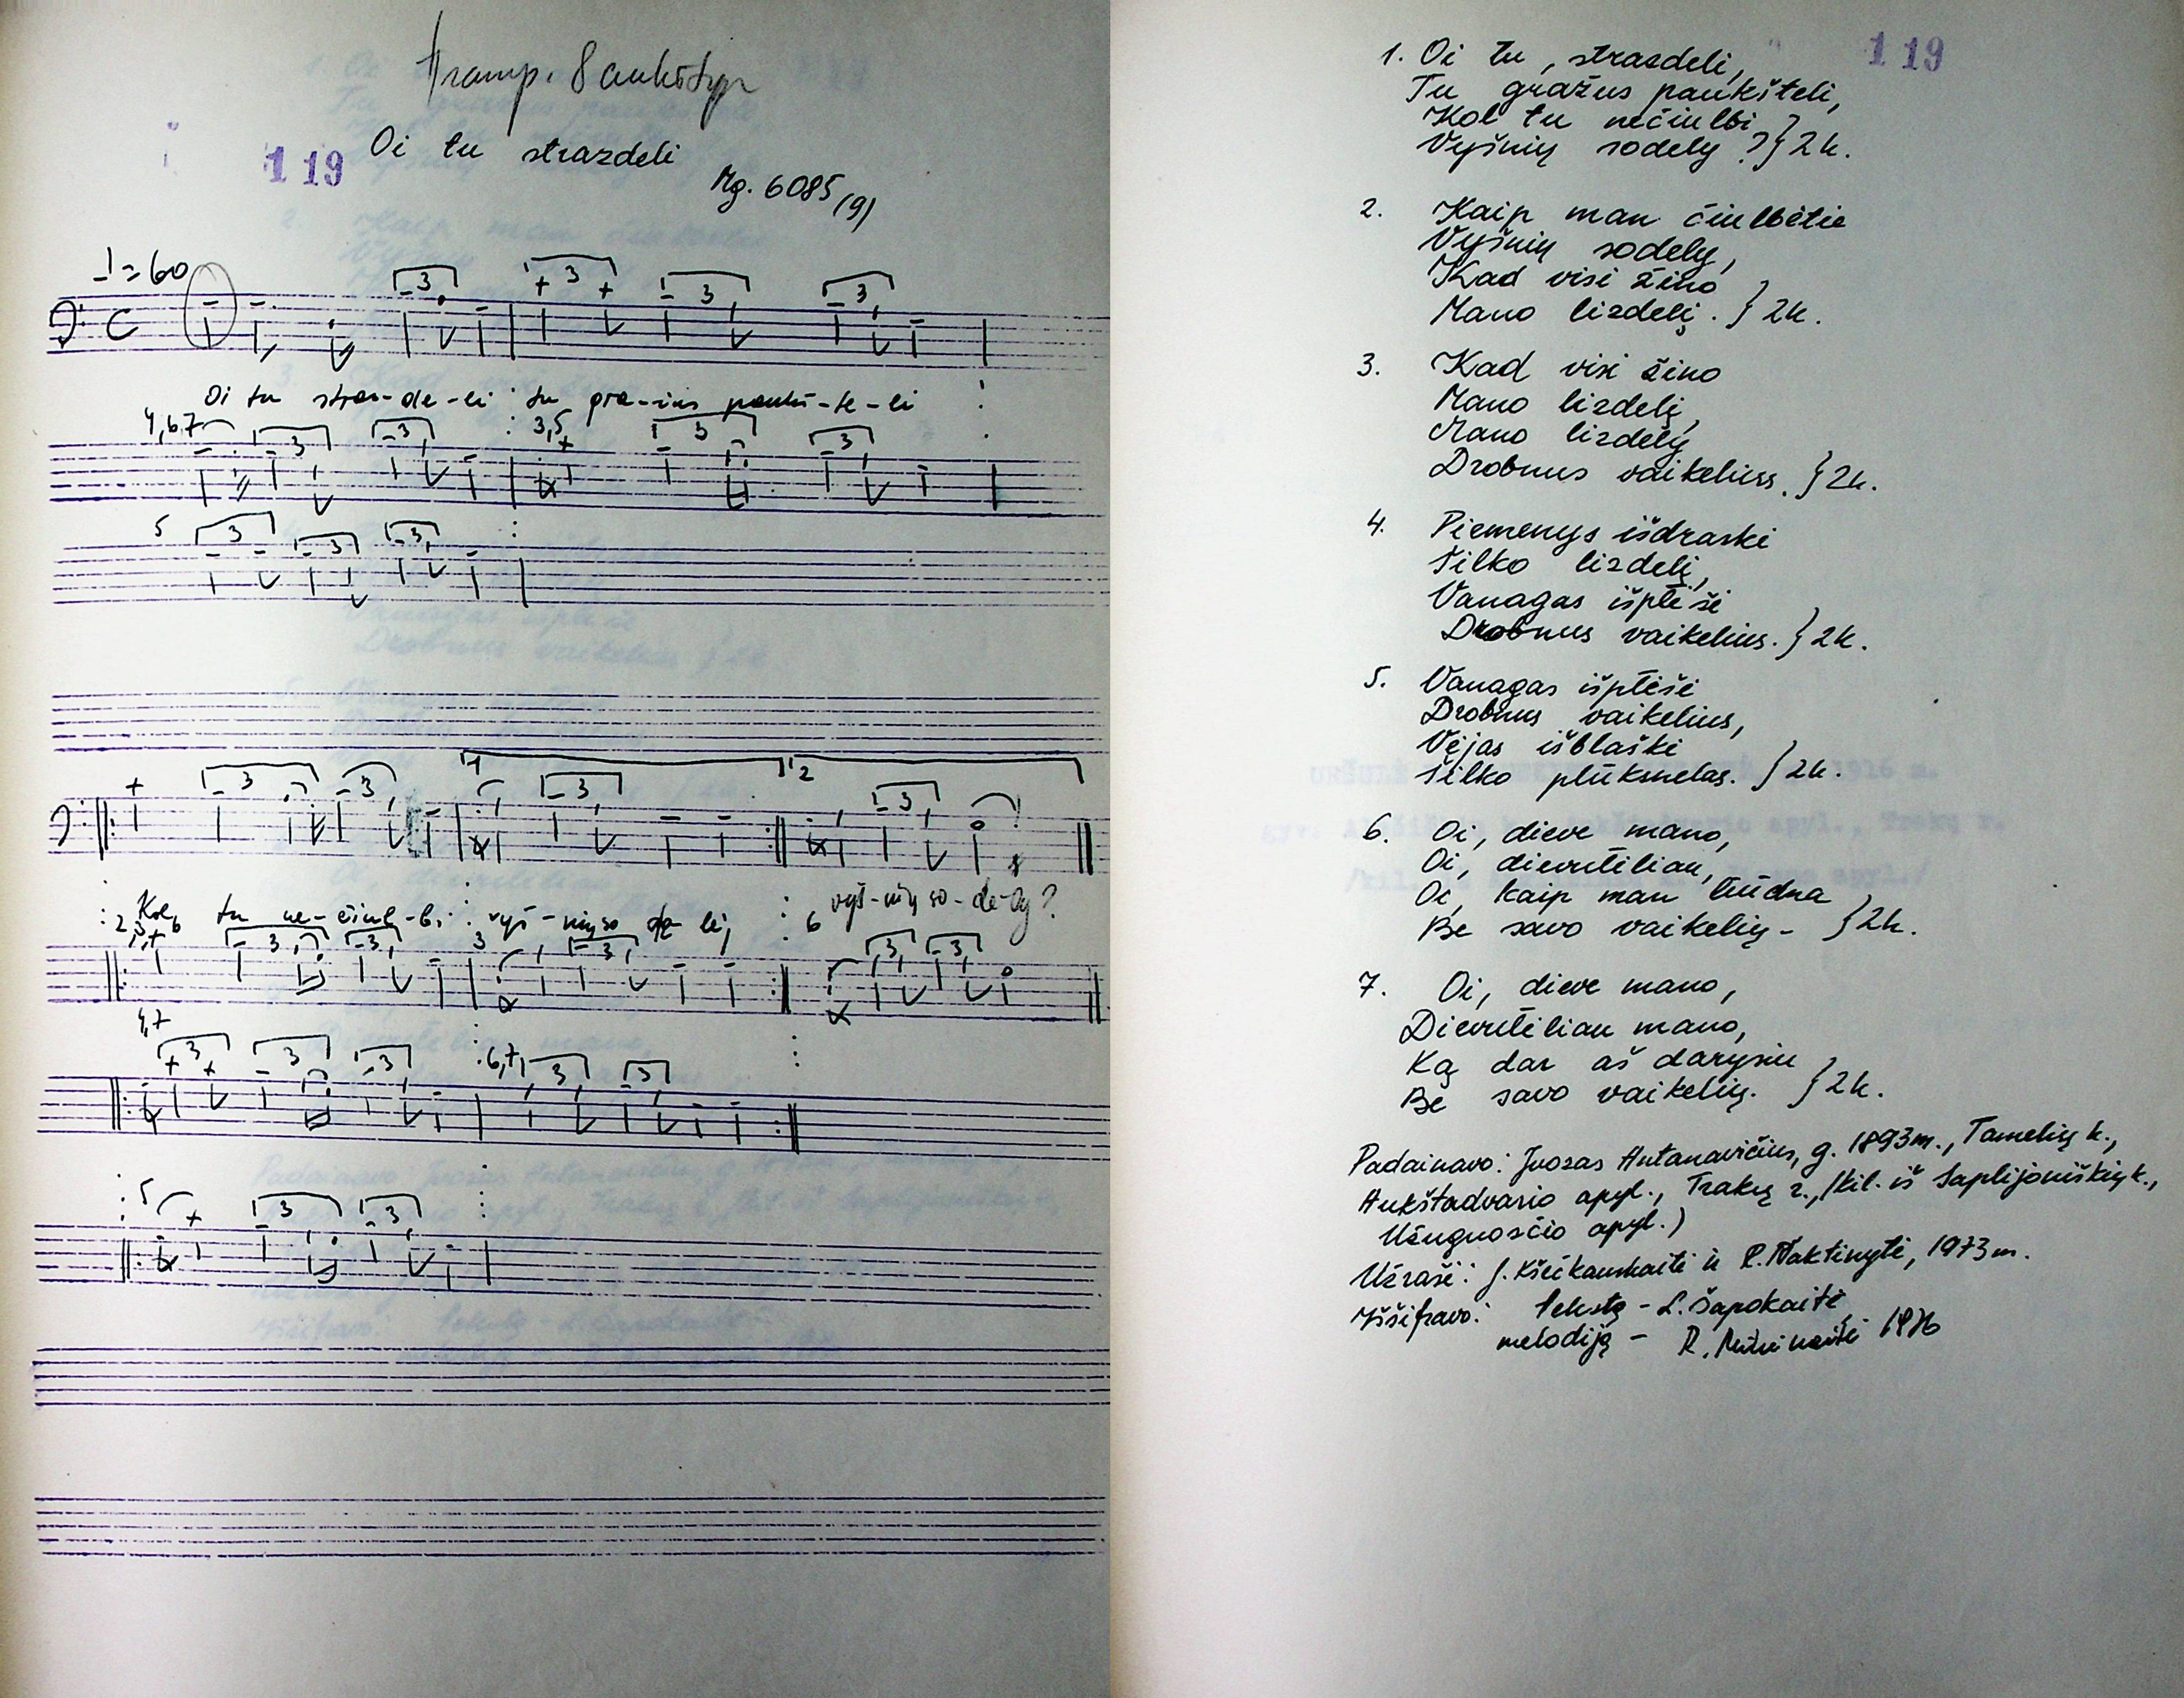 Transp. 8 aukštyn
Oi tu strazdeli
119
Mg. 6085 (9)
♩=60
3 3 3 3
Oi tu straz-de-li tu gra-žus paukš-te-li
4,6,7 3 3 3,5 3 3
5 3 3 3
3 3 1 3 2 3
Kol tu ne-čiul-bi vyš-nių so-de-ly, vyš-nių so-de-ly?
2,3,6 3 3 3 3 6 3 3
4,7 3 3 3 6,7 3 3
5 3 3
119
1. Oi tu, strazdeli,
Tu gražus paukšteli,
Kol tu nečiulbi
Vyšnių sodely? } 2k.
2. Kaip man čiulbėtie
Vyšnių sodely,
Kad visi žino
Mano lizdelį. } 2k.
3. Kad visi žino
Mano lizdelį,
Mano lizdely
Drobnus vaikelius. } 2k.
4. Piemenys išdraskė
Šilko lizdelį,
Vanagas išplėšė
Drobnus vaikelius. } 2k.
5. Vanagas išplėšė
Drobnus vaikelius,
Vėjas išblaškė
Šilko plūksnelas. } 2k.
6. Oi, dieve mano,
Oi, dievulėliau,
Oi, kaip man liūdna
Be savo vaikelių - } 2k.
7. Oi, dieve mano,
Dievulėliau mano,
Ką dar aš darysiu
Be savo vaikelių. } 2k.
Padainavo: Juozas Antanavičius, g. 1893 m., Tamelių k.,
Aukštadvario apyl., Trakų r., /kil. iš Saplijoniškių k.,
Užuguosčio apyl.)
Užrašė: J. ir R. Naktinytė, 1973 m.
Iššifravo: tekstą - L. Šapokaitė,
melodiją - R. 1976